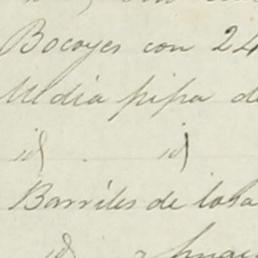 Bocoyes con 24
Media pipa de
id . id
Barriles de losa
id